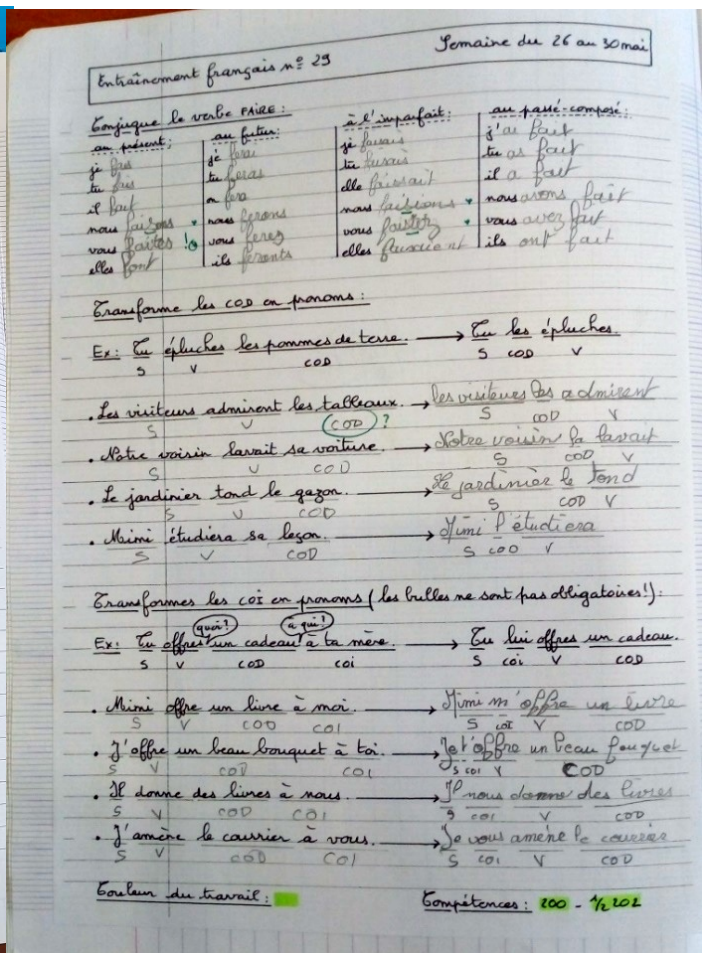 Entraînement français nº 29
Semaine du 26 au 30 mai
Conjugue le verbe FAIRE :
au présent :
je fais
tu fais
il fait
nous faisons
vous faites !
elles font
au futur :
je ferai
tu feras
on fera
nous ferons
vous ferez
ils feronts
à l'imparfait :
je faisais
tu faisais
elle faissait
nous faisions
vous faisiez
elles faisaient
au passé-composé :
j'ai fait
tu as fait
il a fait
nous avons fait
vous avez fait
ils ont fait
Transforme les COD en pronoms :
Ex : Tu épluches les pommes de terre. → Tu les épluches.
S V COD S COD V
. Les visiteurs admirent les tableaux. → les visiteurs les admirent
S V COD ? S COD V
. Notre voisin lavait sa voiture. → Notre voisin la lavait
S V COD S COD V
. Le jardinier tond le gazon. → Le jardinier le tond
S V COD S COD V
. Mimi étudiera sa leçon. → Mimi l'étudiera
S V COD S COD V
Transformes les COI en pronoms (les bulles ne sont pas obligatoires !) :
quoi ? à qui ?
Ex : Tu offres un cadeau à ta mère. → Tu lui offres un cadeau.
S V COD COI S COI V COD
. Mimi offre un livre à moi. → Mimi m'offre un livre
S V COD COI S COI V COD
. J'offre un beau bouquet à toi. → Je t'offre un beau bouquet
S V COD COI S COI V COD
. Il donne des livres à nous. → Il nous donne des livres
S V COD COI S COI V COD
. J'amène le courrier à vous. → Je vous amène le courrier
S V COD COI S COI V COD
Couleur du travail : Compétences : 200 - 1/2 202